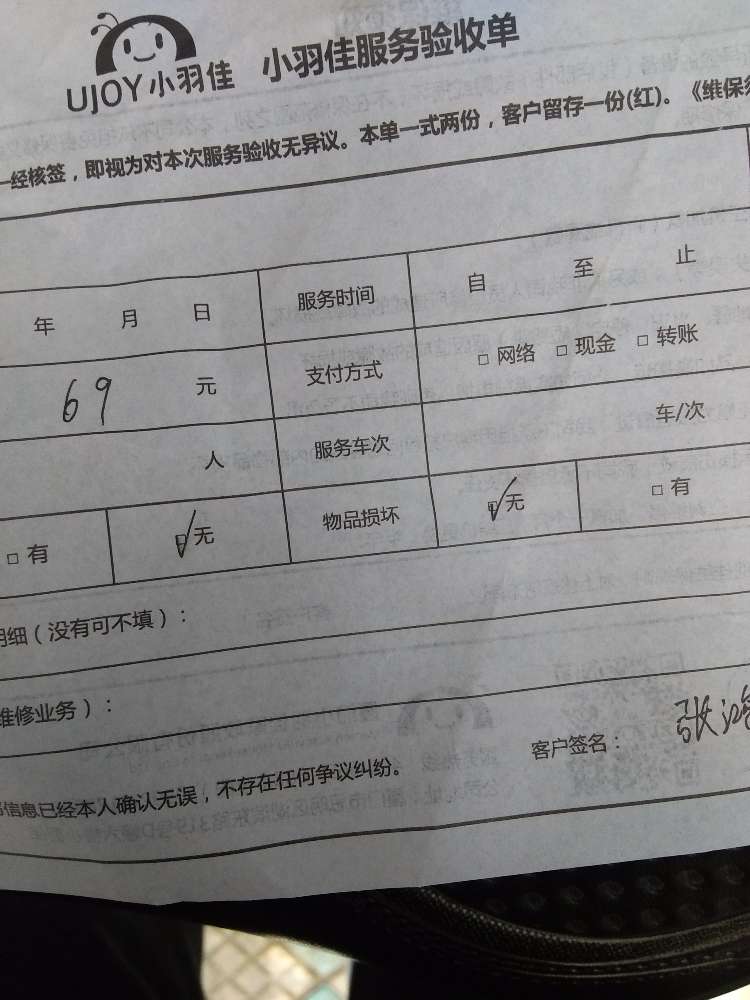 UJOY小羽佳 小羽佳服务验收单
一经核签，即视为对本次服务验收无异议。本单一式两份，客户留存一份(红)。《维保
年 月 日 服务时间 自 至 止
69 元 支付方式 □ 网络 □ 现金 □ 转账
人 服务车次 车/次
□ 有 □ 无 物品损坏 □ 无 □ 有
明细（没有可不填）：
维修业务）：
客户签名： 张
信息已经本人确认无误，不存在任何争议纠纷。